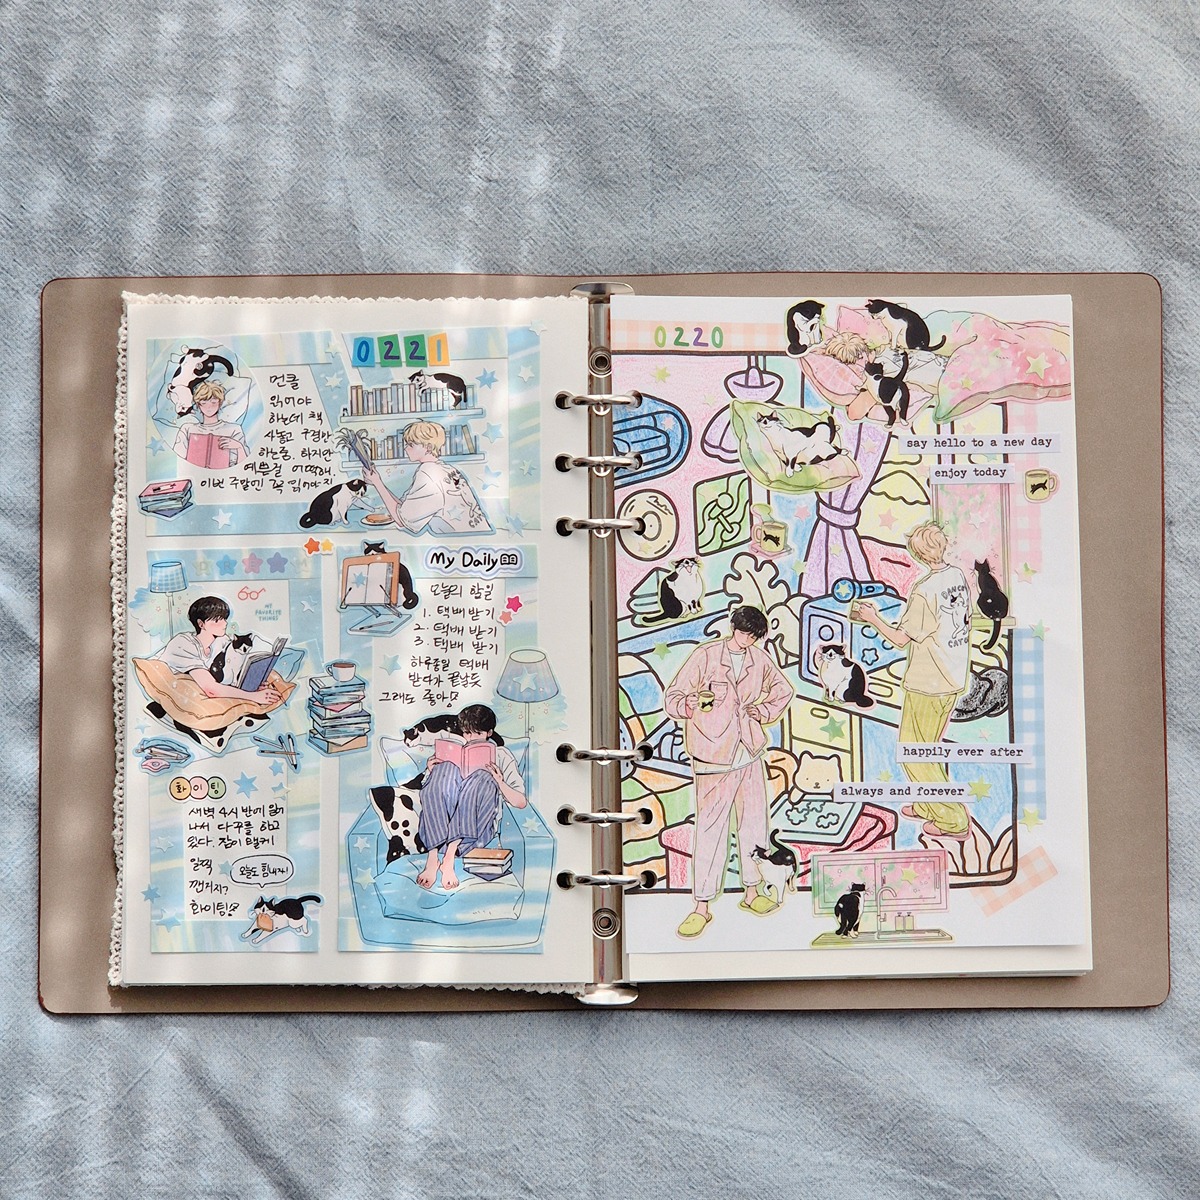 0221
먼클
읽어야
하는데 책
사놓고 구경만
하는중. 하지만
예쁜걸 어떡해.
이번 주말엔 꼭 읽어야지
MY
FAVORITE
THINGS
My Daily
오늘의 할일
1. 택배 받기
2. 택배 받기
3. 택배 받기
하루종일 택배
받다가 끝날듯
그래도 좋아
화이팅
새벽 4시 반에 일어
나서 다꾸를 하고
있다. 잠이 왤케
일찍
깬거지?
화이팅!
오늘도 힘내자!
0220
say hello to a new day
enjoy today
CATS
happily ever after
always and forever